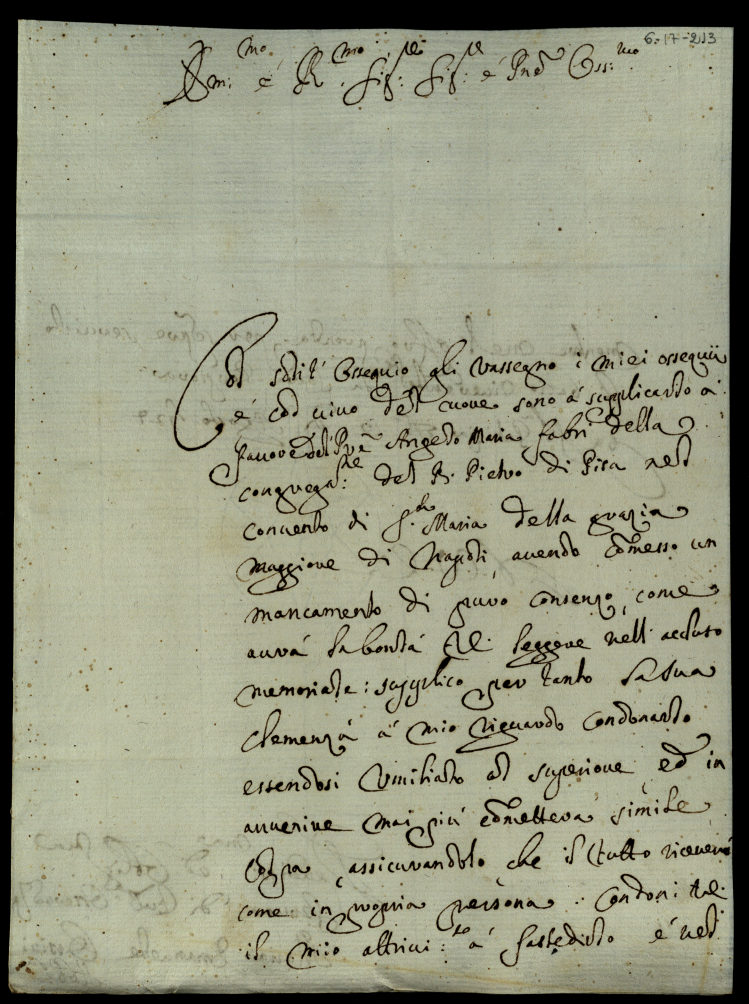 6-17-213
Em:mo é R.mo Sig:re Sig:re é Pne Oss:mo
Col solit' Ossequio gli rassegno i miei ossequii
é col vivo del cuore sono á supplicarlo á
favore del Pre Angelo Maria Fabri della
congregat:ne del B. Pietro di Pisa nel
convento di S.ta Maria della grazia
maggiore di Napoli, avendo comesso un
mancamento di puro consenzo, come
avrá la bontá di leggere nell' accluso
memoriale: supplico per tanto la sua
clemenza á mio riguardo condonarlo
essendosi umiliato al superiore ed in
avvenire mai piú cometterá simile
colpa, assicurandolo che il tutto riceveró
come in propria persona. Condoni
il mio attrivi:to á fastidirlo é nel